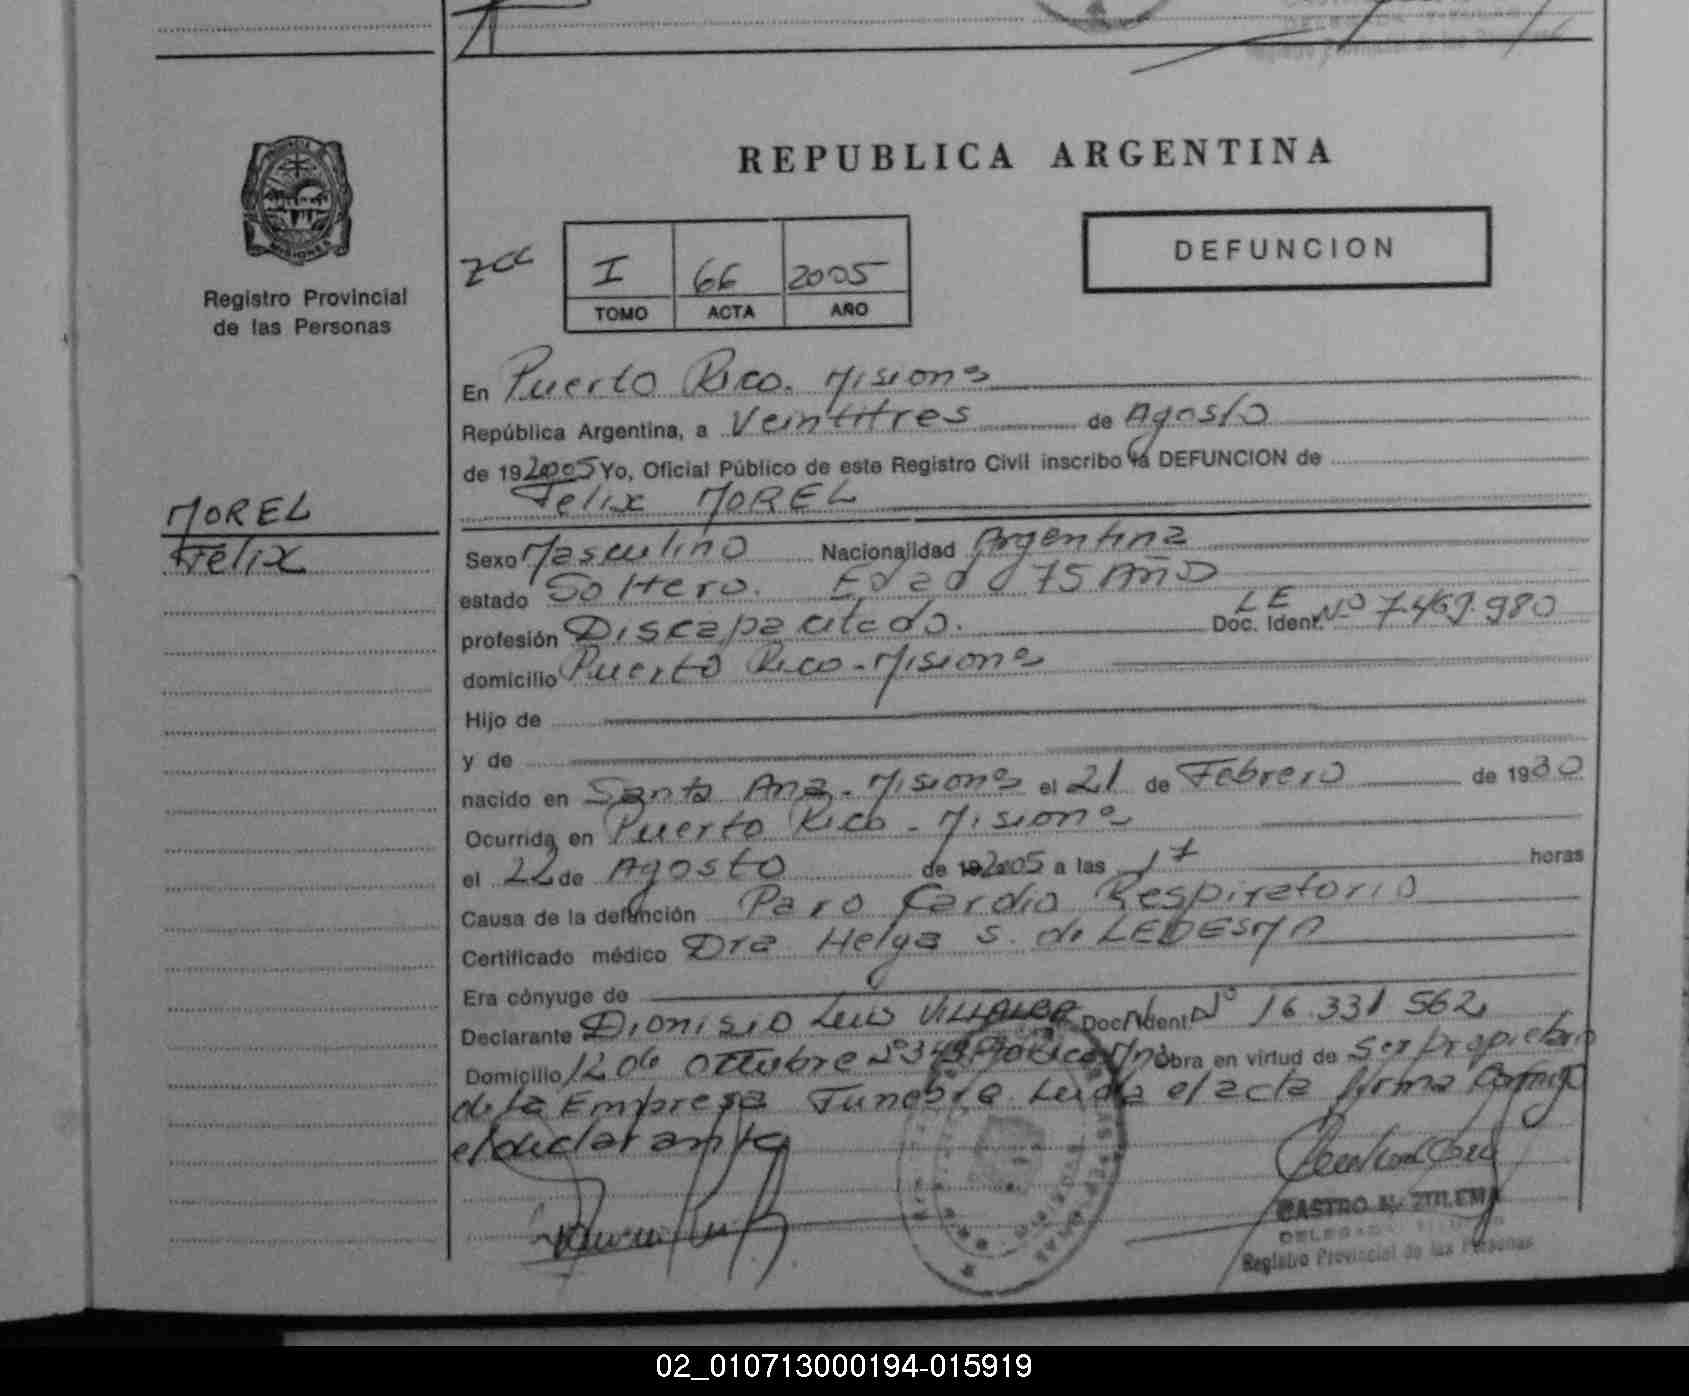 REPUBLICA ARGENTINA
DEFUNCION
I 66 2005
TOMO ACTA AÑO
MISIONES
Registro Provincial
de las Personas
MOREL
Felix
En Puerto Rico. Misiones
República Argentina, a Veintitres de Agosto
de 192005 Yo, Oficial Público de este Registro Civil inscribo la DEFUNCION de
Felix MOREL
Sexo Masculino Nacionalidad Argentina
estado Soltero. Edad 75 Años
profesión Discapacitado. Doc. Ident. LE Nº 7.469.980
domicilio Puerto Rico-Misiones
Hijo de
y de
nacido en Santa Ana-Misiones el 21 de Febrero de 1930
Ocurrida en Puerto Rico-Misiones
el 22 de Agosto de 192005 a las 17 horas
Causa de la defunción Paro Cardio Respiratorio
Certificado médico Dra Helga S. de LEDESMA
Era cónyuge de
Declarante Dionisio Luis VILLALBA Doc. Ident. Nº 16.331.562
Domicilio 12 de Octubre Obra en virtud de Ser propietario
de la Empresa Funebre. Leida el acta firma Conmigo
el declarante
CASTRO N. ZULEMA
DELEGADA TITULAR
Registro Provincial de las Personas
02_010713000194-015919